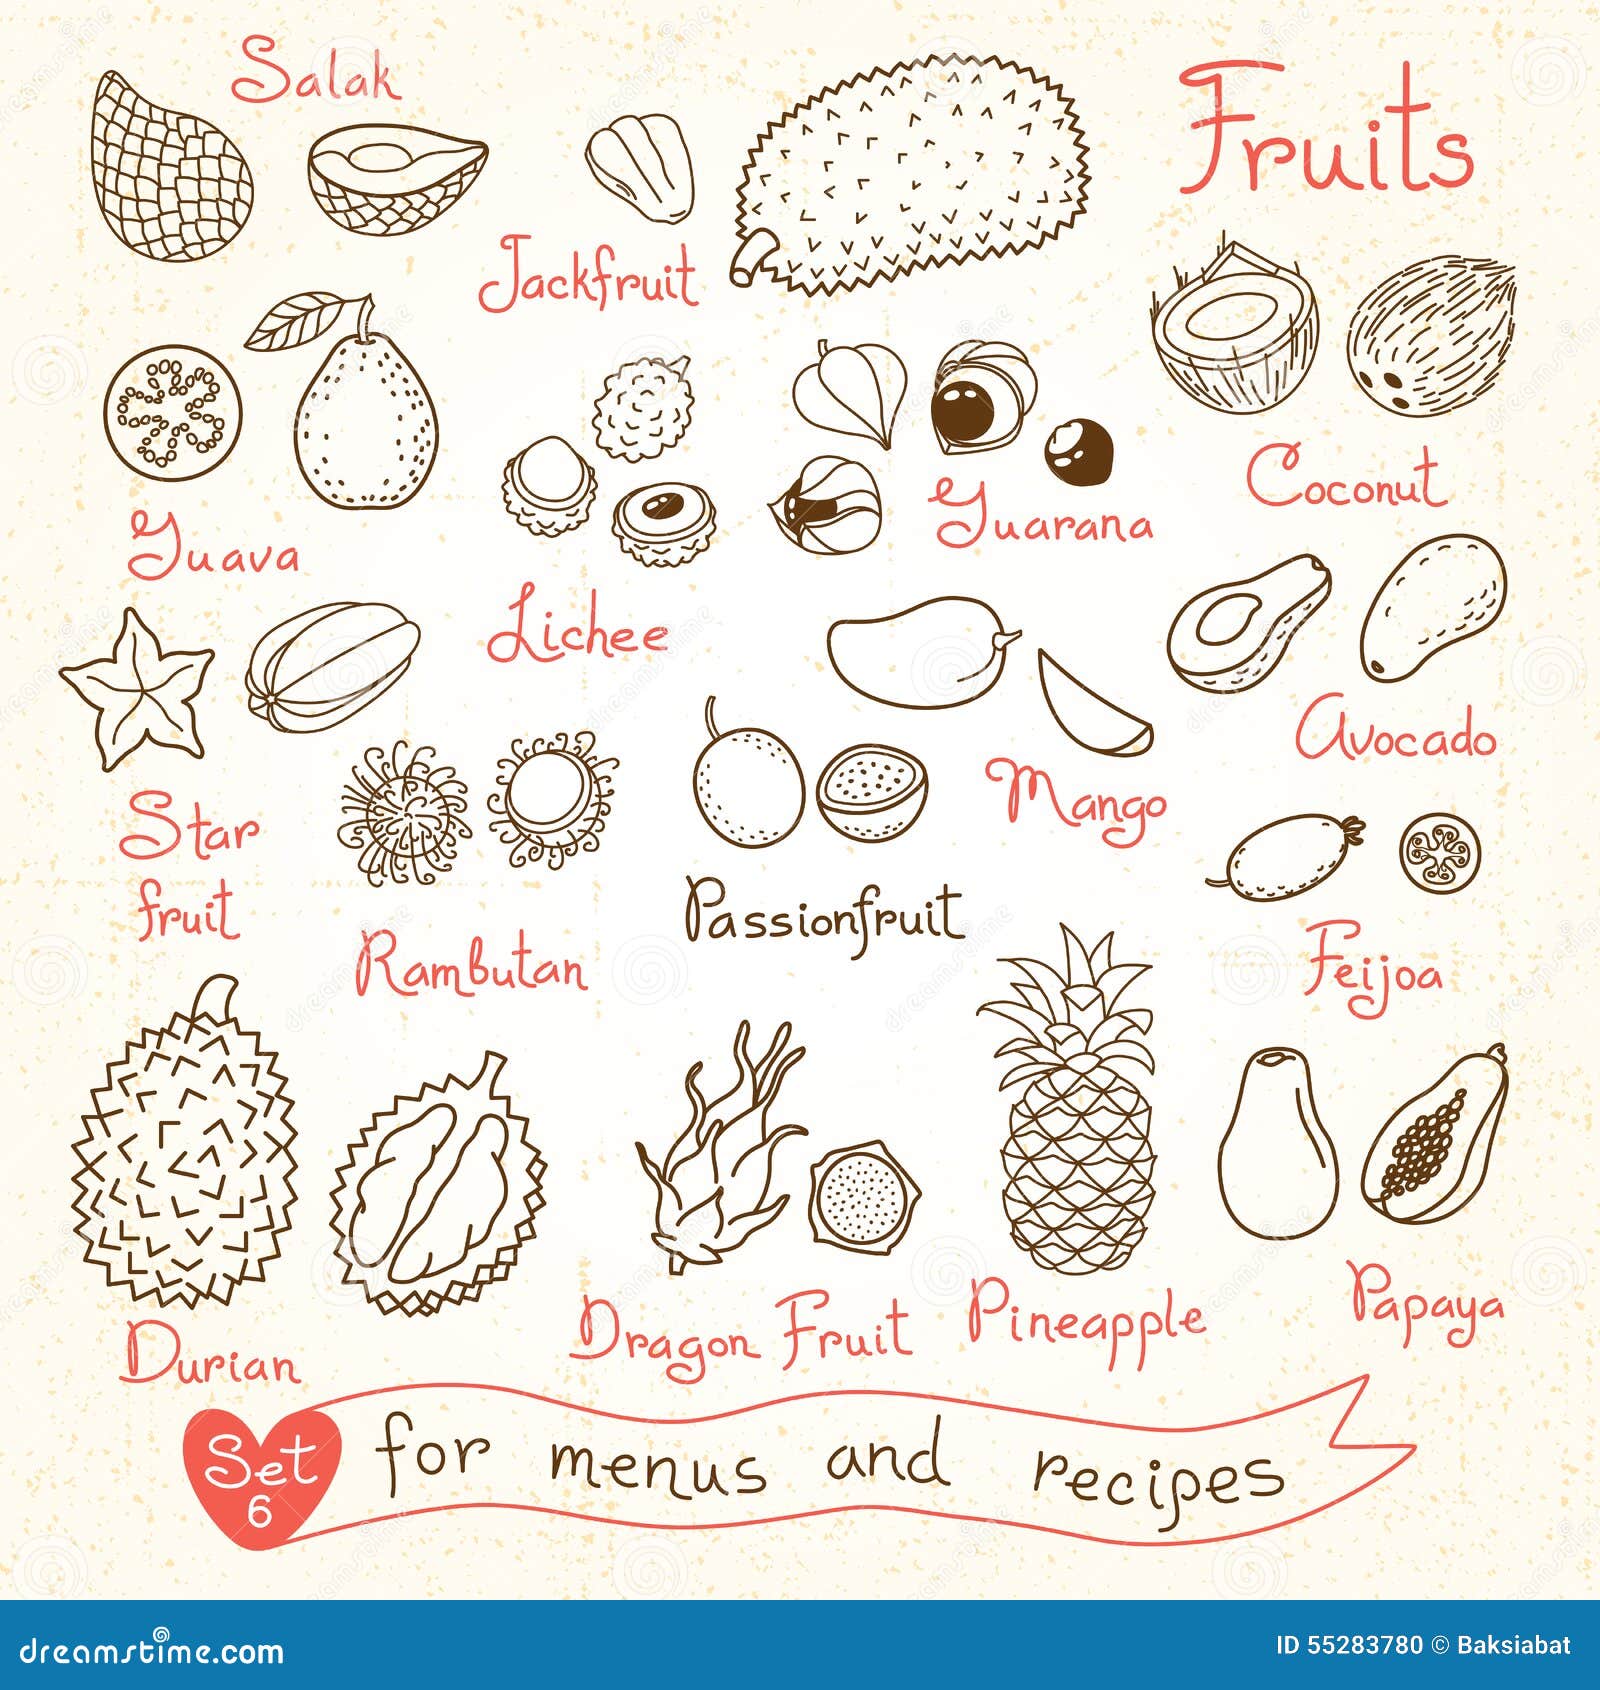 Salak
Fruits
Jackfruit
Coconut
Guava
Guarana
Lichee
Avocado
Star
fruit
Mango
Passionfruit
Rambutan
Feijoa
Durian
Dragon Fruit
Pineapple
Papaya
Set
6
for menus and recipes
dreamstime.com
ID 55283780 © Baksiabat